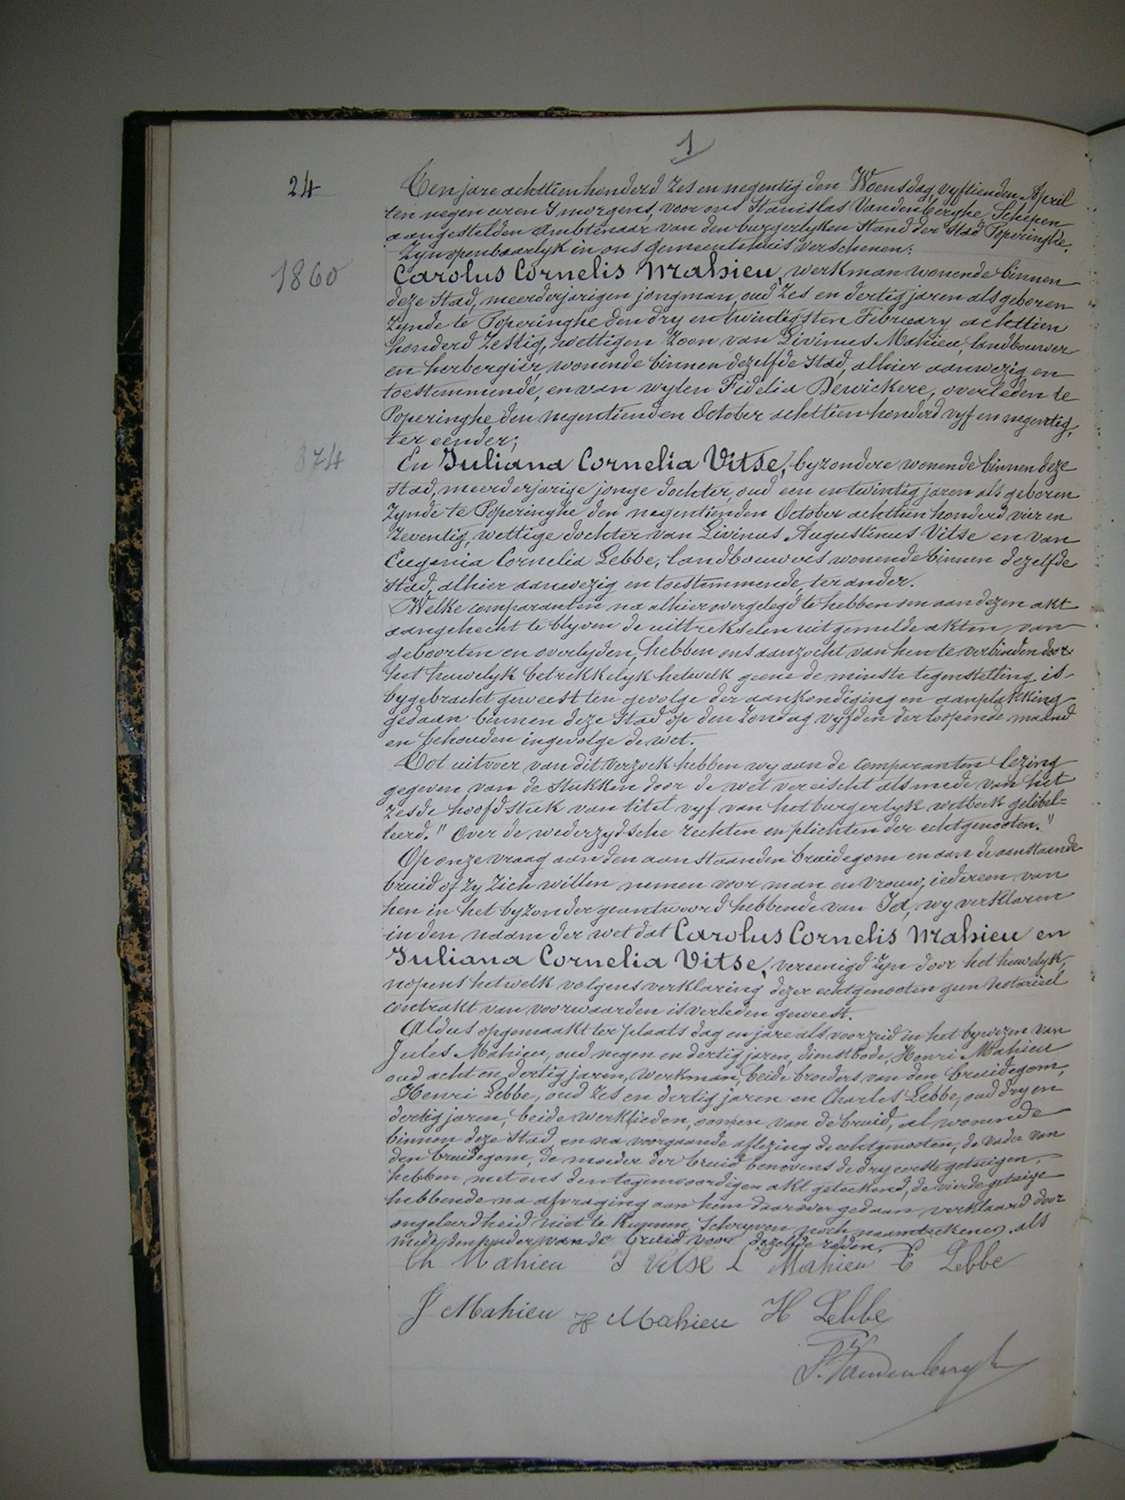 1
24
Ten jare achttien honderd zes en negentig den Woensdag vyftienden April
ten negen uren s' morgens, voor ons Stanislas Vandenberghe Schepen
aangestelden ambtenaar van den burgerlyken Stand der Stad Poperinghe,
Zyn openbaarlyk in ons Gemeentehuis verschenen:
1860
Carolus Cornelis Mahieu, werkman wonende binnen
deze Stad, meerderjarigen jongman, oud zes en dertig jaren als geboren
zynde te Poperinghe den dry en twintigsten February achttien
honderd zestig, wettigen zoon van Livinus Mahieu, landbouwer
en herbergier, wonende binnen dezelfde Stad, alhier aanwezig en
toestemmende, en van wylen Fidelia Dewickere, overleden te
Poperinghe den negentienden October achttien honderd vyf en negentig,
ter eender;
874
En Juliana Cornelia Vitse, byzondere wonende binnen deze
Stad, meerderjarige jonge dochter, oud een en twintig jaren als geboren
zynde te Poperinghe den negentienden October achttien honderd vier en
zeventig, wettige dochter van Livinus Augustinus Vitse en van
Eugenia Cornelia Lebbe, landbouwers wonende binnen dezelfde
Stad, alhier aanwezig en toestemmende, ter ander.
Welke comparanten na alhier overgelegd te hebben om aan dezen akt
aangehecht te blyven de uittrekselen uit gemelde akten van
geboorten en overlyden, hebben ons aanzocht van hen te verbinden door
het huwelyk betrekkelyk hetwelk geene de minste tegenstelling is
bygebracht geweest ten gevolge der aankondiging en aanplakking
gedaan binnen deze Stad op den Zondag vyfden der loopende maand
en behouden ingevolge de wet.
Tot uitvoer van dit verzoek hebben wy aan de comparanten lezing
gegeven van de Stukken door de wet vereischt alsmede van het
zesde hoofdstuk van titel vyf van het burgerlyk wetboek gelibel=
leerd. " Over de wederzydsche rechten en plichten der echtgenooten."
Op onze vraag aan den aanstaanden bruidegom en aan de aanstaande
bruid of zy zich willen nemen voor man en vrouw, iedereen van
hen in het byzonder geantwoord hebbende van Ja, wy verklaren
in den naam der wet dat Carolus Cornelis Mahieu en
Juliana Cornelia Vitse, vereenigd zyn door het huwelyk,
nopens hetwelk volgens verklaring dezer echtgenooten geen notarieel
contrakt van voorwaarden is verleden geweest.
Aldus opgemaakt ter plaats dag en jare als voorzeid in het bywezen van
Jules Mahieu, oud negen en dertig jaren, dienstbode, Henri Mahieu
oud acht en dertig jaren, werkman, beide broeders van den bruidegom,
Henri Lebbe, oud zes en dertig jaren en Charles Lebbe, oud dry en
dertig jaren, beide werklieden, oomen van de bruid, al wonende
binnen deze Stad, en na voorgaande aflezing de echtgenooten, de vader van
den bruidegom, de moeder der bruid benevens de dry eerste getuigen
hebben met ons den tegenwoordigen akt geteekend, de vierde getuige
hebbende na afvraging aan hem daarover gedaan verklaard door
ongeleerdheid niet te kunnen schryven noch naamteekenen, als
mede den vader van de bruid voor dezelfde reden.
Ch Mahieu J Vitse L Mahieu E Lebbe
J Mahieu H Mahieu H Lebbe
S. Vandenberghe